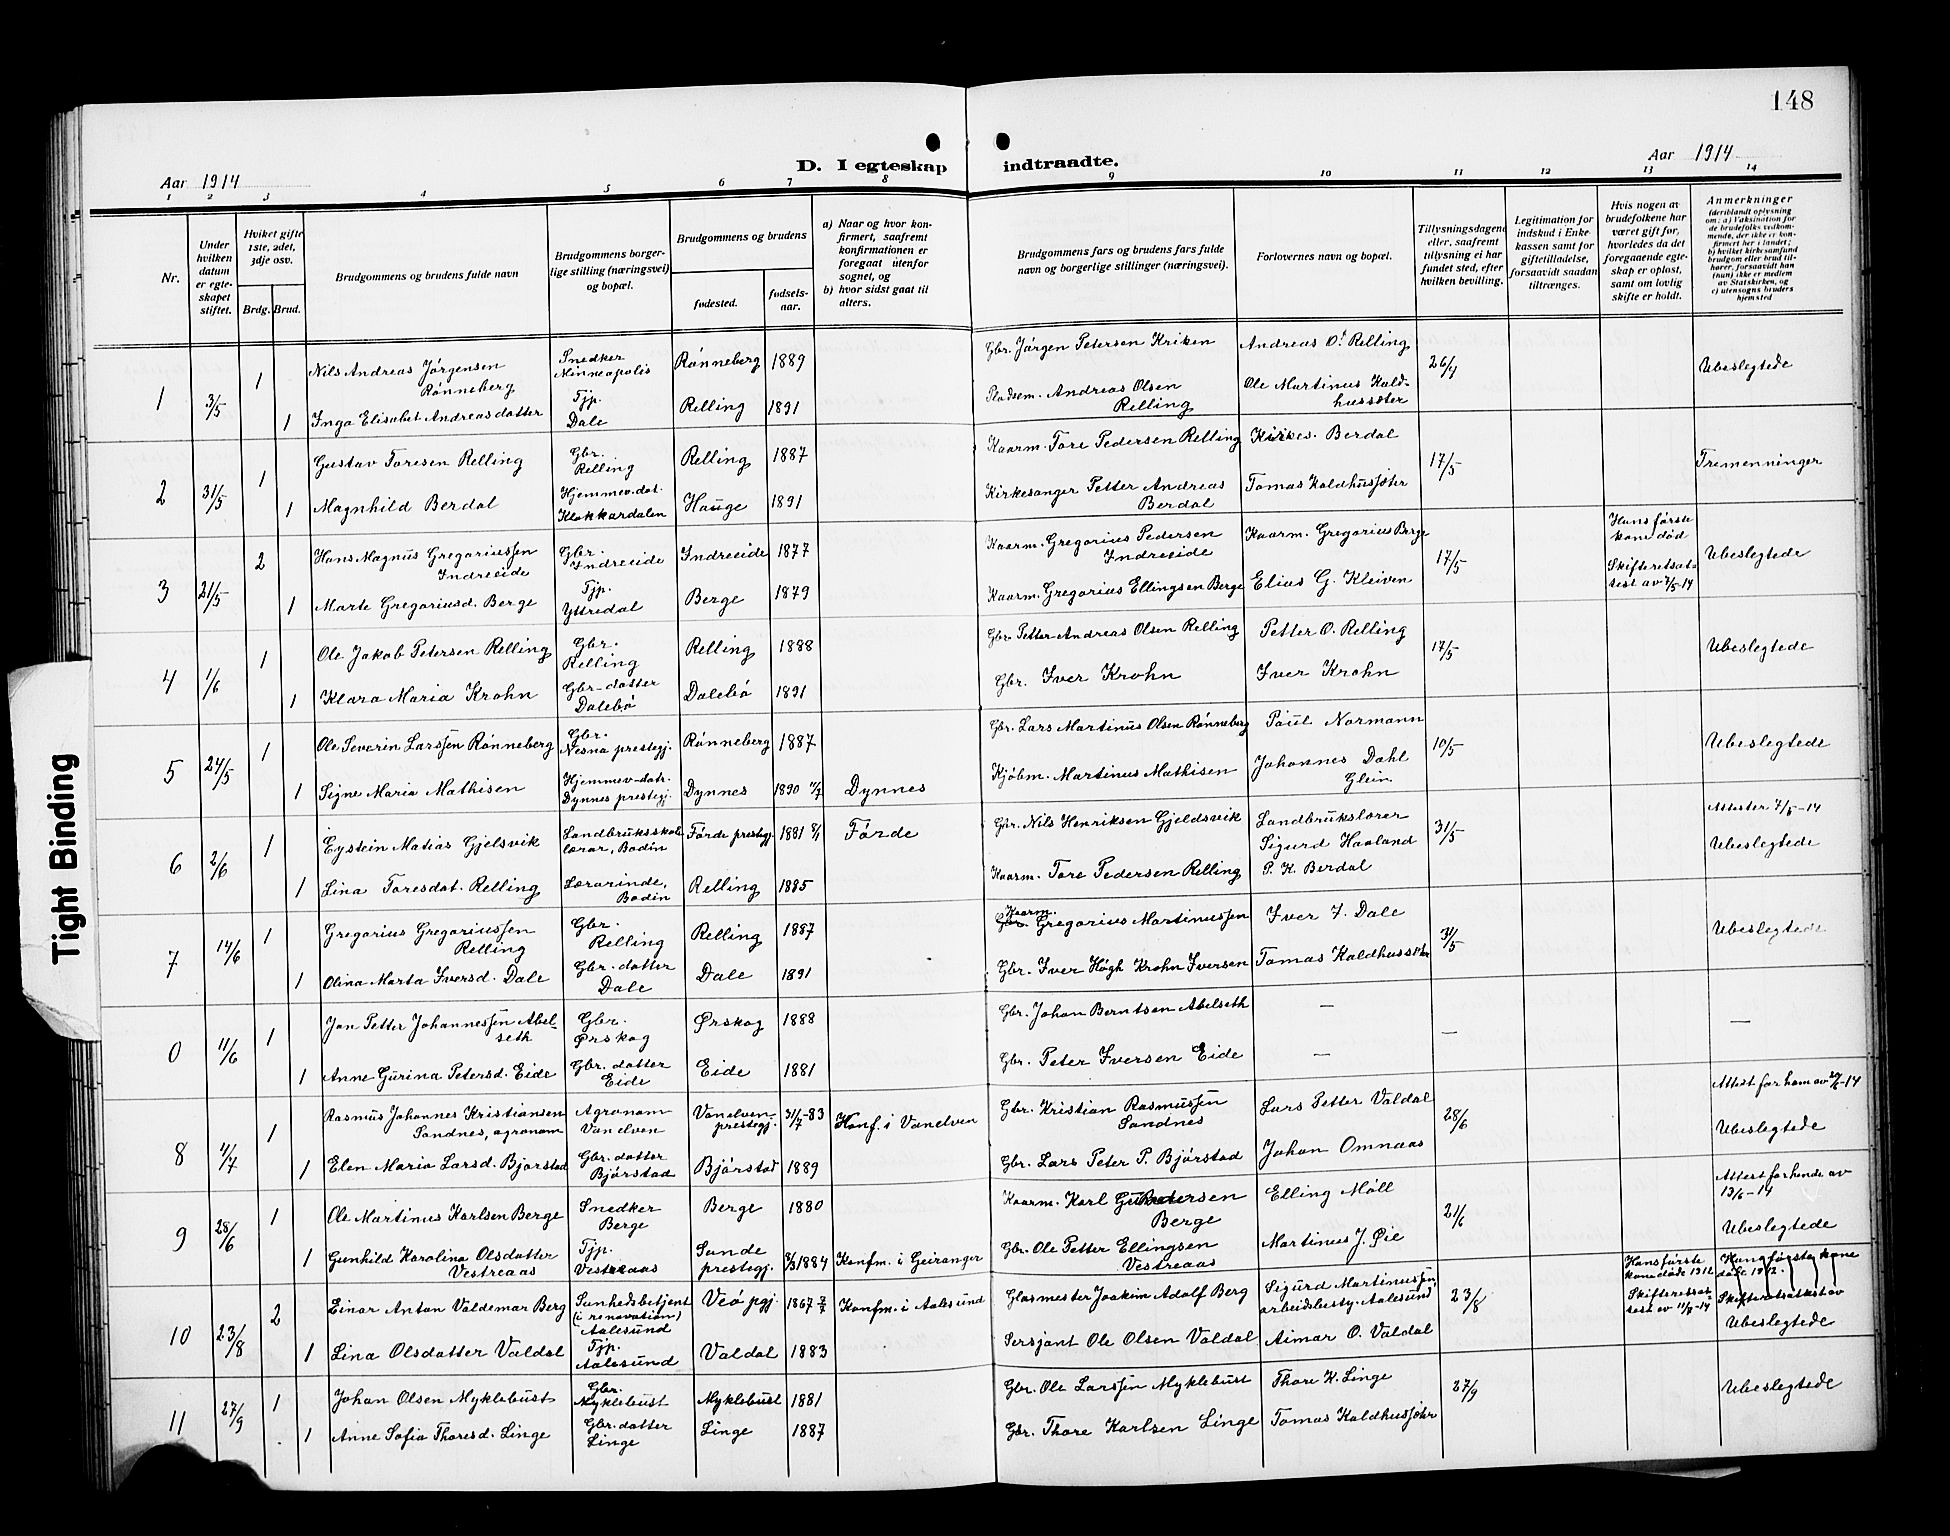 148
D. I egteskap indtraadte.
Aar 1914
Aar 1914
1 2 3 4 5 6 7 8 9 10 11 12 13 14
Nr.
Under hvilken datum er egteskapet stiftet.
Hviket gifte 1ste, 2det, 3dje osv.
Brdg. Brud.
Brudgommens og brudens fulde navn
Brudgommens borgerlige stilling (næringsvei) og bopæl.
Brudgommens og brudens
fødested.
fødselsaar.
a) Naar og hvor konfirmert, saafremt konfirmationen er foregaat utenfor sognet, og
b) hvor sidst gaat til alters.
Brudgommens fars og brudens fars fulde navn og borgerlige stillinger (næringsvei).
Forlovernes navn og bopæl.
Tillysningsdagene eller, saafremt tillysning ei har fundet sted, efter hvilken bevilling.
Legitimation for indskud i Enkekassen samt for giftetilladelse, forsaavidt saadan tiltrænges.
Hvis nogen av brudefolkene har været gift før, hvorledes da det foregaaende egteskap er opløst, samt om lovlig skifte er holdt.
Anmerkninger
(deriblandt oplysning om: a) Vaksination for de brudefolks vedkommende, der ikke er konfirmert her i landet; b) hvilket kirkesamfund brudgom eller brud tilhører, forsaavidt han (hun) ikke er medlem av Statskirken, og c) utensogns bruders hjemsted
1 3/5 1 Nils Andreas Jørgensen Rønneberg Snedker Minneapolis Rønneberg 1889 Gbr. Jørgen Petersen Kriken Andreas O. Relling 26/4 Ubeslegtede
1 Inga Elisabet Andreasdatter Tjp. Dale Relling 1891 Pladsem. Andreas Olsen Relling Ole Martinus Kaldhussæter
2 31/5 1 Gustav Toresen Relling Gbr. Relling Relling 1887 Kaarm. Tore Pedersen Relling Kirkes. Berdal 17/5 Tremenninger
1 Magnhild Berdal Hjemmev. dat. Klokkardalen Hauge 1891 Kirkesanger Petter Andreas Berdal Tomas Kaldhussæter
3 21/5 2 Hans Magnus Gregoriussen Indreeide Gbr. Indreeide Indreeide 1877 Kaarm. Gregorius Pedersen Indreeide Kaarm. Gregorius Berge 17/5 Hans første kone død Skifteretsattest av 7/5-14 Ubeslegtede
1 Marte Gregoriusd. Berge Tjp. Yttredal Berge 1879 Kaarm. Gregorius Ellingsen Berge Elias G. Kleiven
4 1/6 1 Ole Jakob Petersen Relling Gbr. Relling Relling 1888 Gbr. Petter Andreas Olsen Relling Petter O. Relling 17/5 Ubeslegtede
1 Klara Maria Krohn Gbr-datter Dalebø Dalebø 1891 Gbr. Iver Krohn Iver Krohn
5 24/5 1 Ole Severin Larssen Rønneberg Gbr. Nesna prestegj. Rønneberg 1887 Gbr. Lars Martinus Olsen Rønneberg Paul Normann 10/5 Ubeslegtede
1 Signe Maria Mathisen Hjemmev-datr. Dynnes prestegj. Dynnes 1890 Dynnes Kjøbm. Martinus Mathisen Johannes Dahl Glein
6 2/6 1 Eystein Matias Gjelsvik Landbruksskolelærar, Bodin Førde prestegj. 1881 Førde Gbr. Nils Henriksen Gjeldsvik Landbrukslærer Sigurd Haaland 31/5 Attester 7/5-14 Ubeslegtede
1 Lina Toresdat. Relling Lærarinde, Bodin Relling 1885 Kaarm. Tore Pedersen Relling P. K. Berdal
7 14/6 1 Gregorius Gregoriussen Relling Gbr. Relling Relling 1887 Kaarm. Gregorius Martinussen Iver I. Dale 31/5 Ubeslegtede
1 Olina Marta Iversd. Dale Gbr. datter Dale Dale 1891 Gbr. Iver Høgh Krohn Iversen Tomas Kaldhussæter
0 11/6 1 Jon Petter Johannessen Abelseth Gbr. Ørskog Ørskog 1888 Gbr. Johan Berntsen Abelseth — — —
1 Anne Gurina Petersd. Eide Gbr. datter Eide Eide 1881 Gbr. Peter Iversen Eide —
8 4/7 1 Rasmus Johannes Kristiansen Sandnes, agronom Agronom Vanelven Vanelven prestegj. 31/7-83 Konf. i Vanelven Gbr. Kristian Rasmussen Sandnes Lars Petter Valdal 28/6 Attest for ham av 29/6-14 Ubeslegtede
1 Elen Maria Larsd. Bjørstad Gbr. datter Bjørstad Bjørstad 1889 Gbr. Lars Peter P. Bjørstad Johan Omnaas
9 28/6 1 Ole Martinus Karlsen Berge Snedker Berge Berge 1880 Kaarm. Karl Berge Elling Møll 21/6 Attest for hende av 13/6-14 Ubeslegtede
1 Gunhild Karolina Olsdatter Vestreaas Tjp. Vestreaas Sunde prestegj. 1884 Konfm. i Geiranger Gbr. Ole Petter Ellingsen Vestreaas Martinus J. Øie
10 23/8 2 Einar Anton Valdemar Berg Sunhedsbetjent (i renovation) Aalesund Veø pgj. 1867 Konfm. i Aalesund Glasmester Joakim Adolf Berg Sigurd Martinussen, arbeidsbesty. Aalesund 23/8 Hans første kone døde 1912 Skifteretsattest av 11/8-14 Hans første kone døde 1912. Skifteretsattest av Ubeslegtede
1 Lina Olsdatter Valdal Tjp. Aalesund Valdal 1883 Sersjant Ole Olsen Valdal Aimar O. Valdal
11 27/9 1 Johan Olsen Myklebust Gbr. Myklebust Myklebust 1881 Gbr. Ole Larssen Myklebust Thore K. Linge 27/9 Ubeslegtede
1 Anne Sofia Thoresd. Linge Gbr. datter Linge Linge 1887 Gbr. Thore Karlsen Linge Tomas Kaldhussæter
Tight Binding